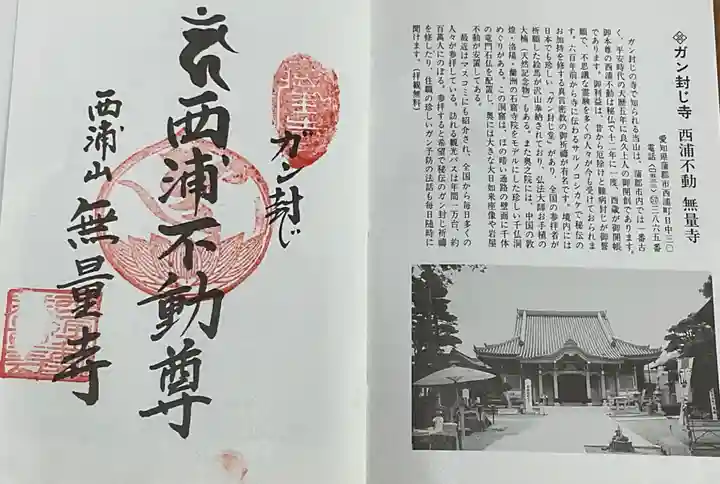 卍 ガン封じ寺 西浦不動 無量寺
愛知県蒲郡市西浦町日中三〇
電話〈〇五三三〉 三八六五番
ガン封じの寺で知られる当山は、蒲郡市内では一番古
く、平安時代の天歴五年に良久上人の御開創であります。
御本尊の西浦不動は秘仏で十二年に一度、酉歳が御開帳
であります。御利益は、昔から厄除けと難病封じが御誓
願で、不思議な霊験を多くの人々が今も受けておられま
す。六百年前から寺に伝わるサルノコシカケで秘伝の
お加持を修する真言密教の御祈禱が有名です。境内には
日本でも珍しい「ガン封じ堂」があり、全国の参拝者が
祈願した絵馬が沢山奉納されており、弘法大師お手植の
大楠(天然記念物)もある。また奥之院には、中国の敦
煌・洛陽・蘭州の石窟寺院をモデルにした珍しい千仏洞
めぐりがある。この洞窟は、ほの暗い通路の壁面に千体
の竜門石仏を配置し、奥には大きな大日如来座像や岩屋
不動が安置してある。
最近はマスコミにも紹介され、全国から毎日多くの
人々が参拝している。訪れる観光バスは年間一万台、約
百萬人にのぼる。参拝すると希望で秘伝のガン封じ祈禱
を修したり、住職の珍しいガン予防の法話も毎日随時に
聞けます。(拝観無料)
ガン封じ
西浦不動尊
西浦山 無量寺